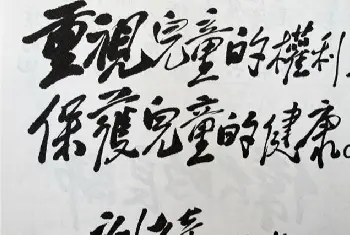 重視兒童的權利
保護兒童的健康。